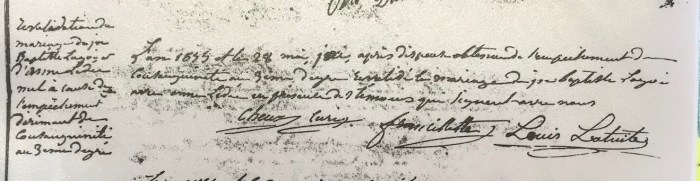 revalidation du
mariage de jos
Baptiste Lagoy et
d'anne Ledu
nul à cause de
l'empêchement
dérimant de
Consanguinité
au 3eme degré
L'an 1855 et le 28 mai, j'ai, après dispense obtenue de l'empêchement de
Consanguinité au 3eme degré revalidé le mariage de jos baptiste
avec anne Ledu en présence des témoins qui signent avec nous
Curé Louis